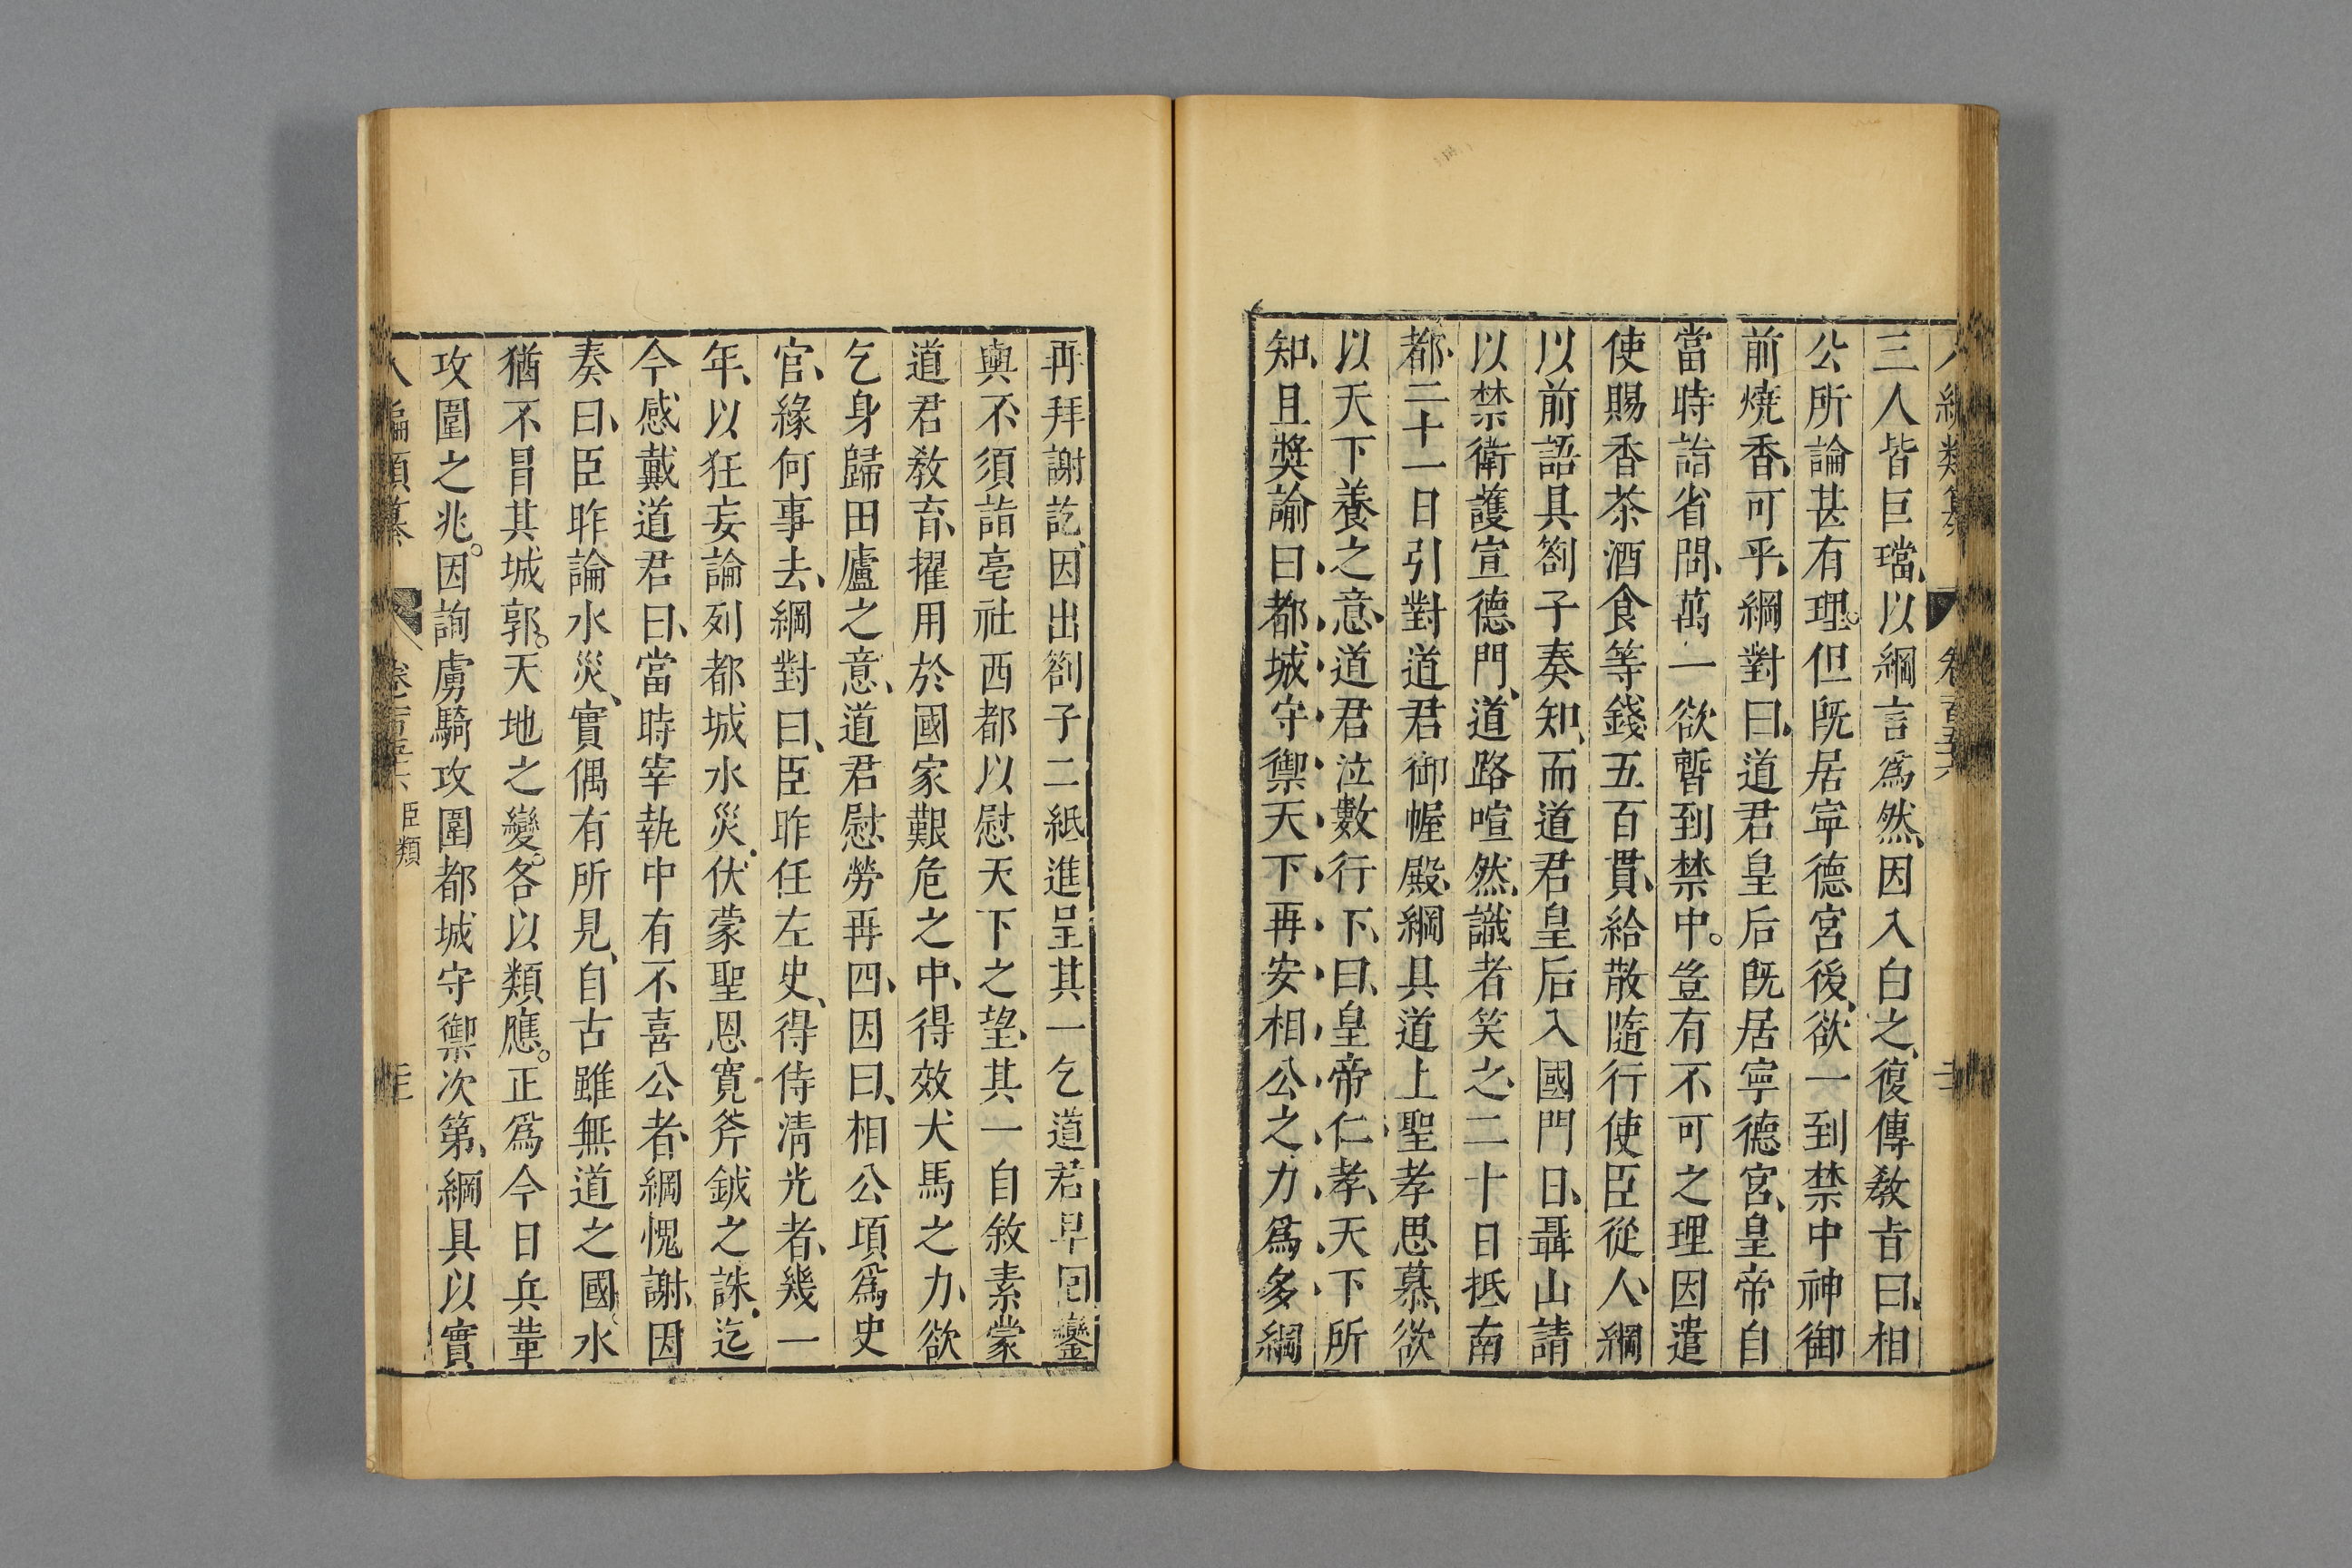 三人皆巨璫、以綱言爲然、因入白之、復傳教旨曰、相
公所論甚有理。但既居寧德宮後、欲一到禁中神御
前燒香、可乎、綱對曰、道君皇后既居寧德宮、皇帝自
當時詣省問、萬一欲暫到禁中。豈有不可之理因遣
使賜香茶酒食等錢五百貫、給散隨行使臣從人、綱
以前語具劄子奏知、而道君皇后入國門日、聶山請
以禁衛護宣德門、道路喧然、識者笑之、二十日抵南
都、二十一日引對道君御幄殿、綱具道上聖孝思慕、欲
以天下養之意、道君泣數行下、曰、皇帝仁孝、天下所
知、且獎諭曰、都城守禦天下再安相公之力爲多、綱
再拜謝訖、因出劄子二紙進呈其一乞道君早回鑾
輿不須詣亳社西都以慰天下之望、其一自敘素蒙
道君教育、擢用於國家艱危之中、得效犬馬之力、欲
乞身歸田廬之意、道君慰勞再四、因曰、相公頃爲史
官、緣何事去、綱對曰、臣昨任左史、得侍清光者、幾一
年、以狂妄論列都城水災、伏蒙聖恩寬斧鉞之誅、迄
今感戴道君曰、當時宰執中有不喜公者、綱愧謝、因
奏曰、臣昨論水災、實偶有所見、自古雖無道之國、水
猶不冒其城郭。天地之變。各以類應。正爲今日兵革
攻圍之兆。因詢虜騎攻圍都城守禦次第、綱具以實
編類纂 卷之一百五十六 臣類